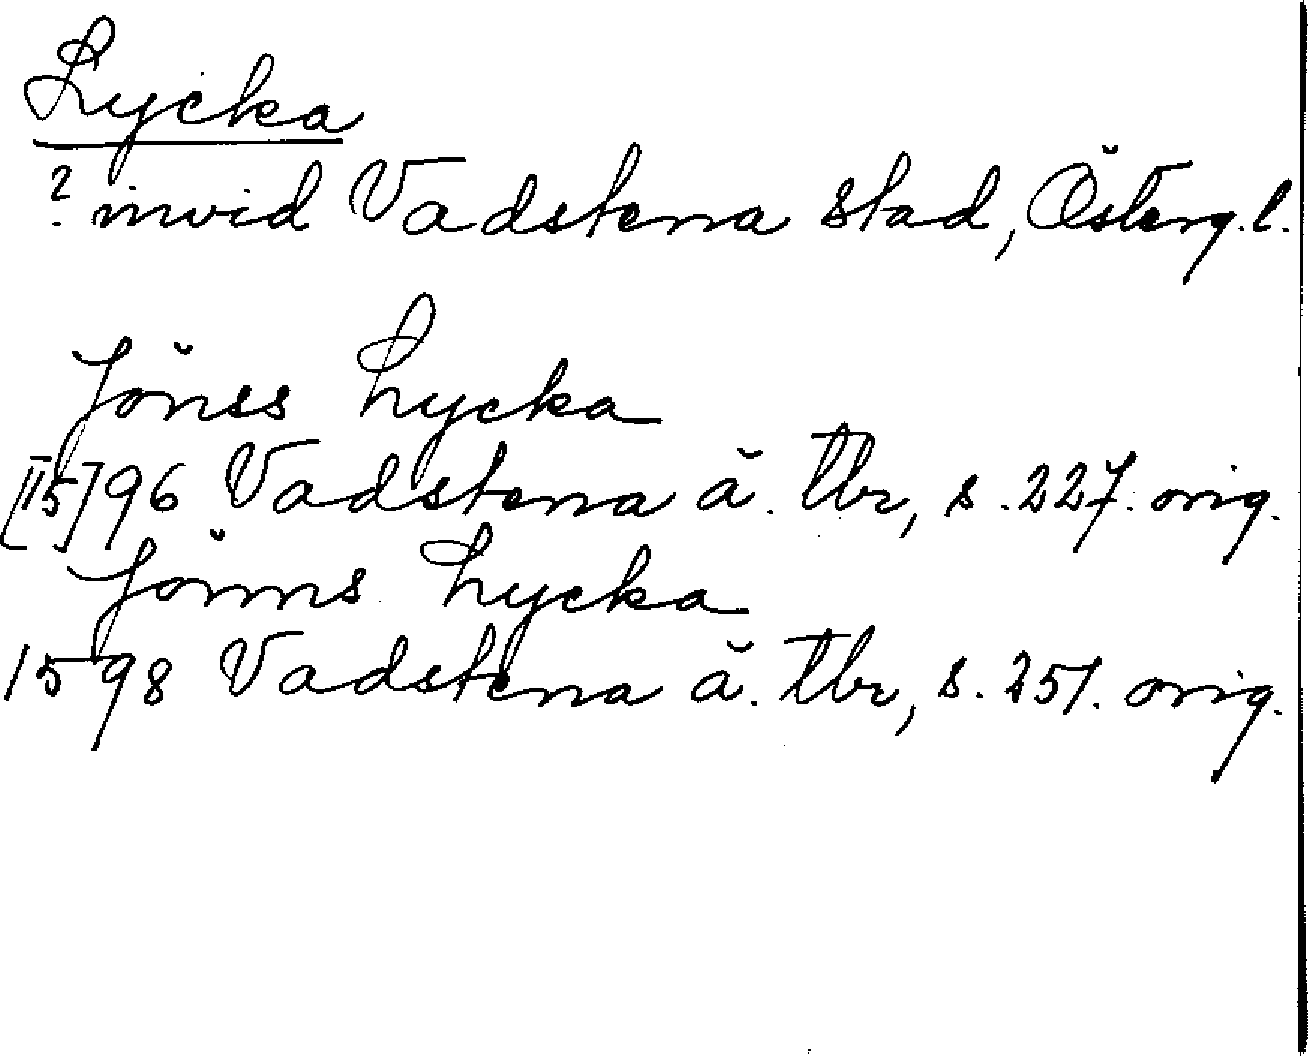 Lycka
? invid Vadstena stad, Österg.l.
Jönss Lycka
[15]96 Vadstena ä. tbr, s. 227. orig.
Jönns Lycka
1598 Vadstena ä. tbr, s. 251. orig.